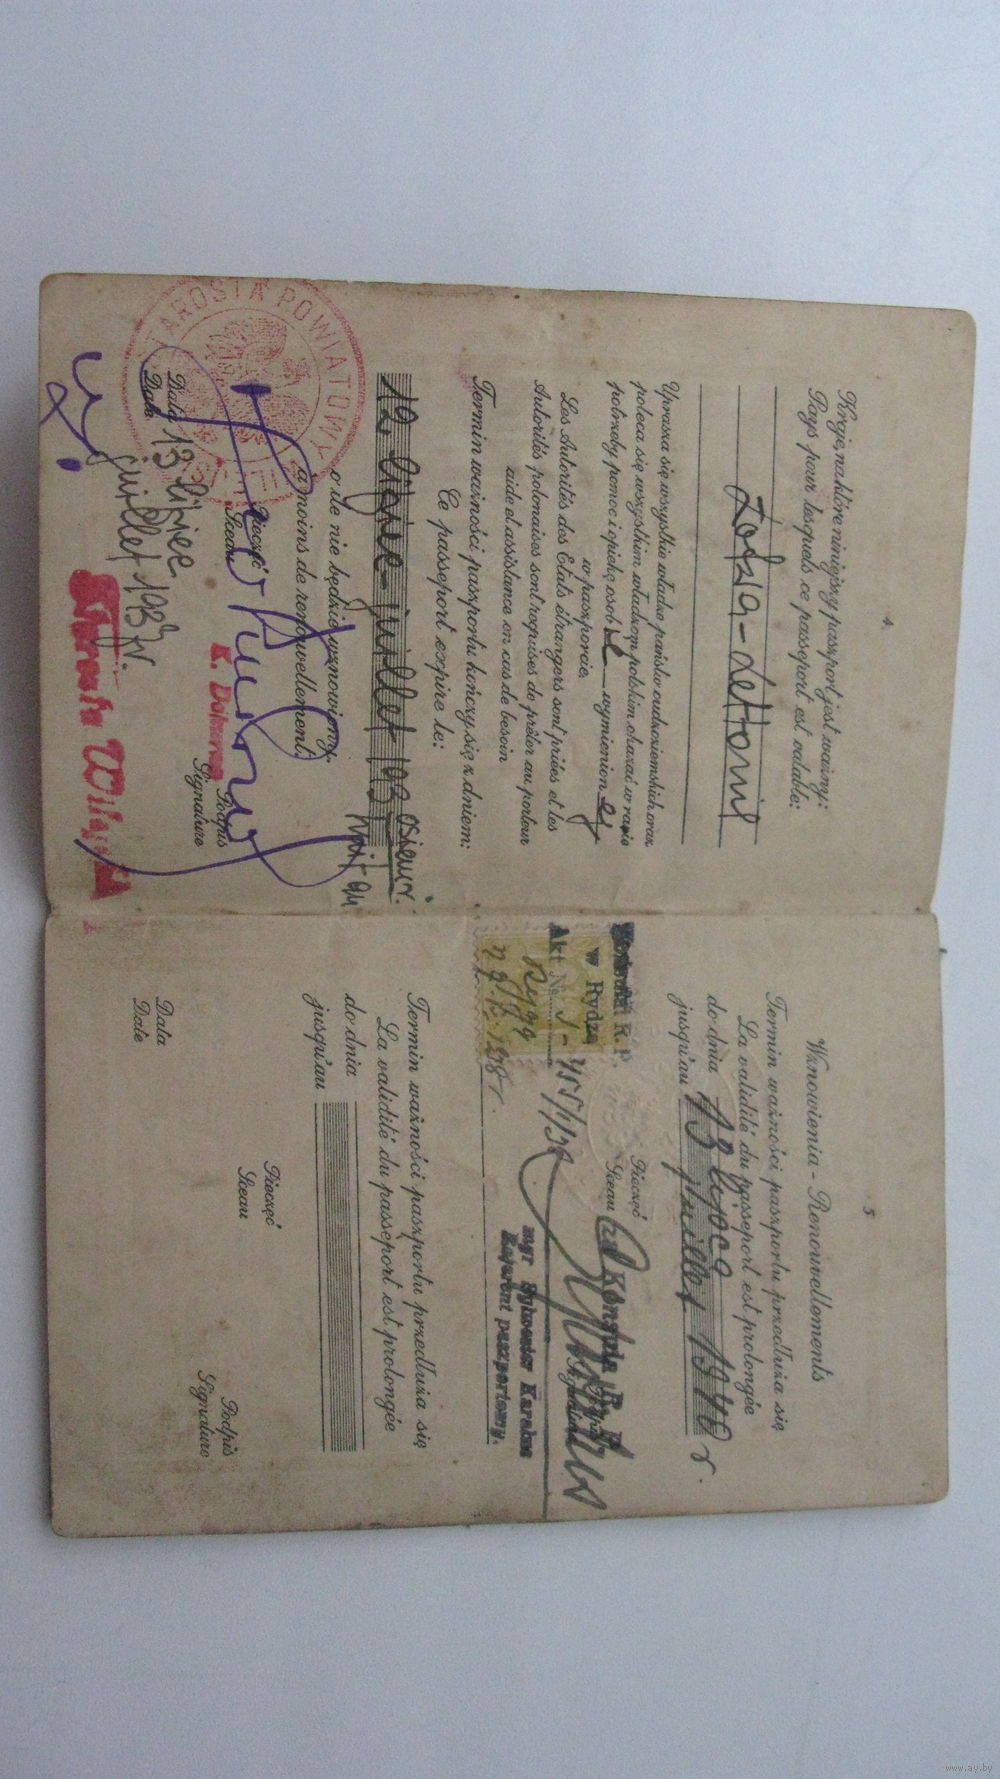 4
Kraje, na które niniejszy paszport jest ważny:
Pays pour lesquels ce passeport est valable:
Łotwa - Lettonie
Uprasza się wszystkie władze państw cudzoziemskich oraz
poleca się wszystkim władzom polskim okazać w razie
potrzeby pomoc i opiekę osobie wymienionej
w paszporcie.
Les Autorités des Etats étrangers sont priées et les
Autorités polonaises sont requises de prêter au porteur
aide et assistance en cas de besoin
Termin ważności paszportu kończy się z dniem:
Ce passeport expire le:
12 lipiec - juillet 193 osiem r.
o ile nie będzie wznowiony.
à moins de renouvellement.
STAROSTA POWIATOWY
Pieczęć
Sceau
Podpis
Signature
Data 13 lipiec
Date juillet 1937 r.
Starosta
5
Wznowienia - Renouvellements
Termin ważności paszportu przedłuża się
La validité du passeport est prolongée
do dnia
jusqu'au 13 lipca juillet 1940 r.
Konsulat R.P.
w Rydze
Akt №
Pieczęć
Sceau
Podpis
Signature
mgr Sylwester Karabas
Referent paszportowy.
Termin ważności paszportu przedłuża się
La validité du passeport est prolongée
do dnia
jusqu'au
Pieczęć
Sceau
Podpis
Signature
Data
Date
www.ay.by